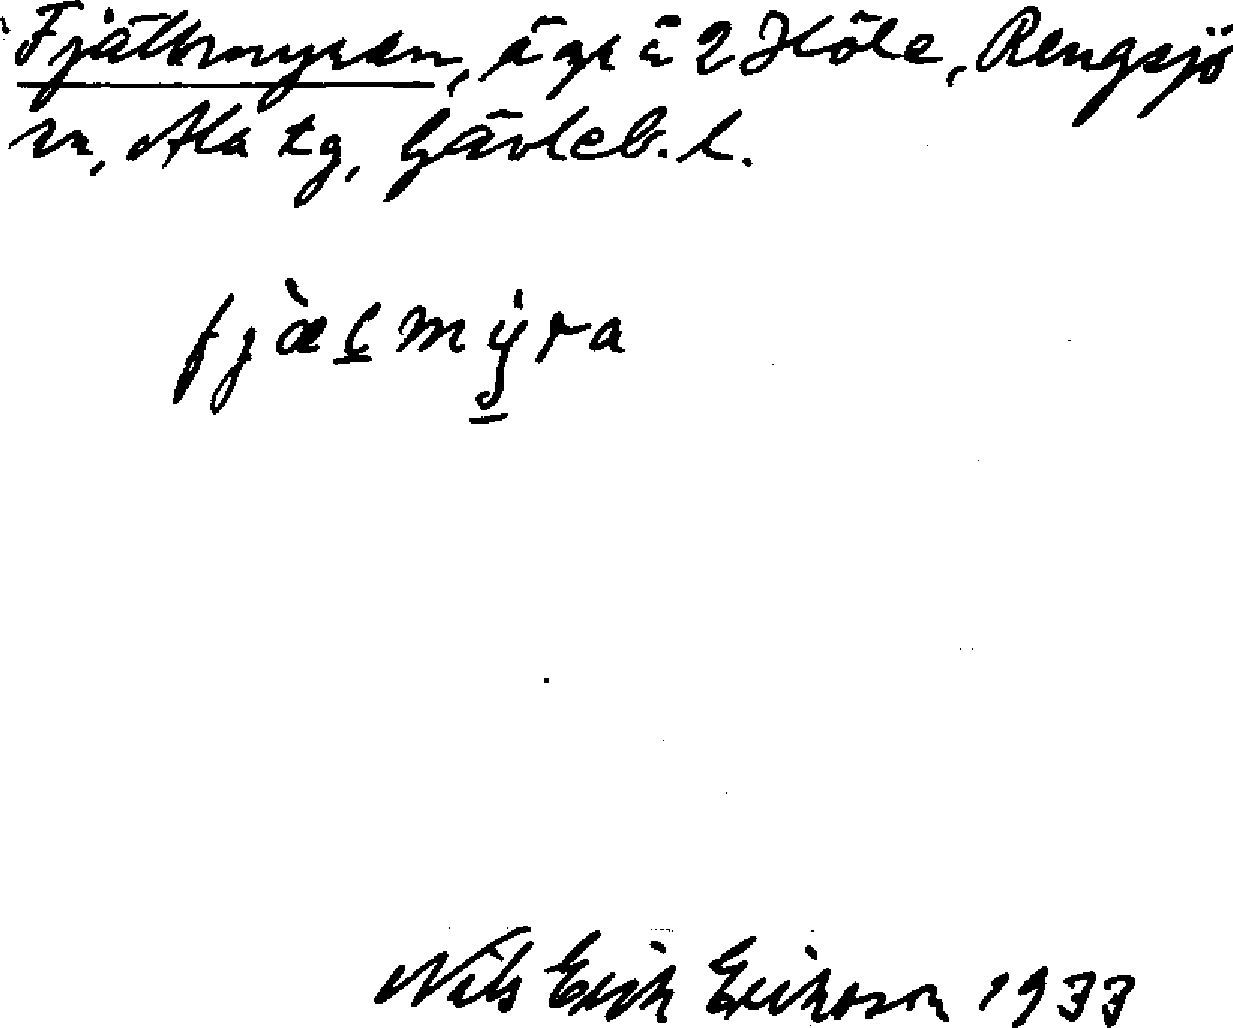 Fjälbmyran, äga å 2 Höle, Rengsjö
sn, Ala tg, Gävleb. l.
fjæ̀ḻmy̱ra
Nils Erik Erikson 1933